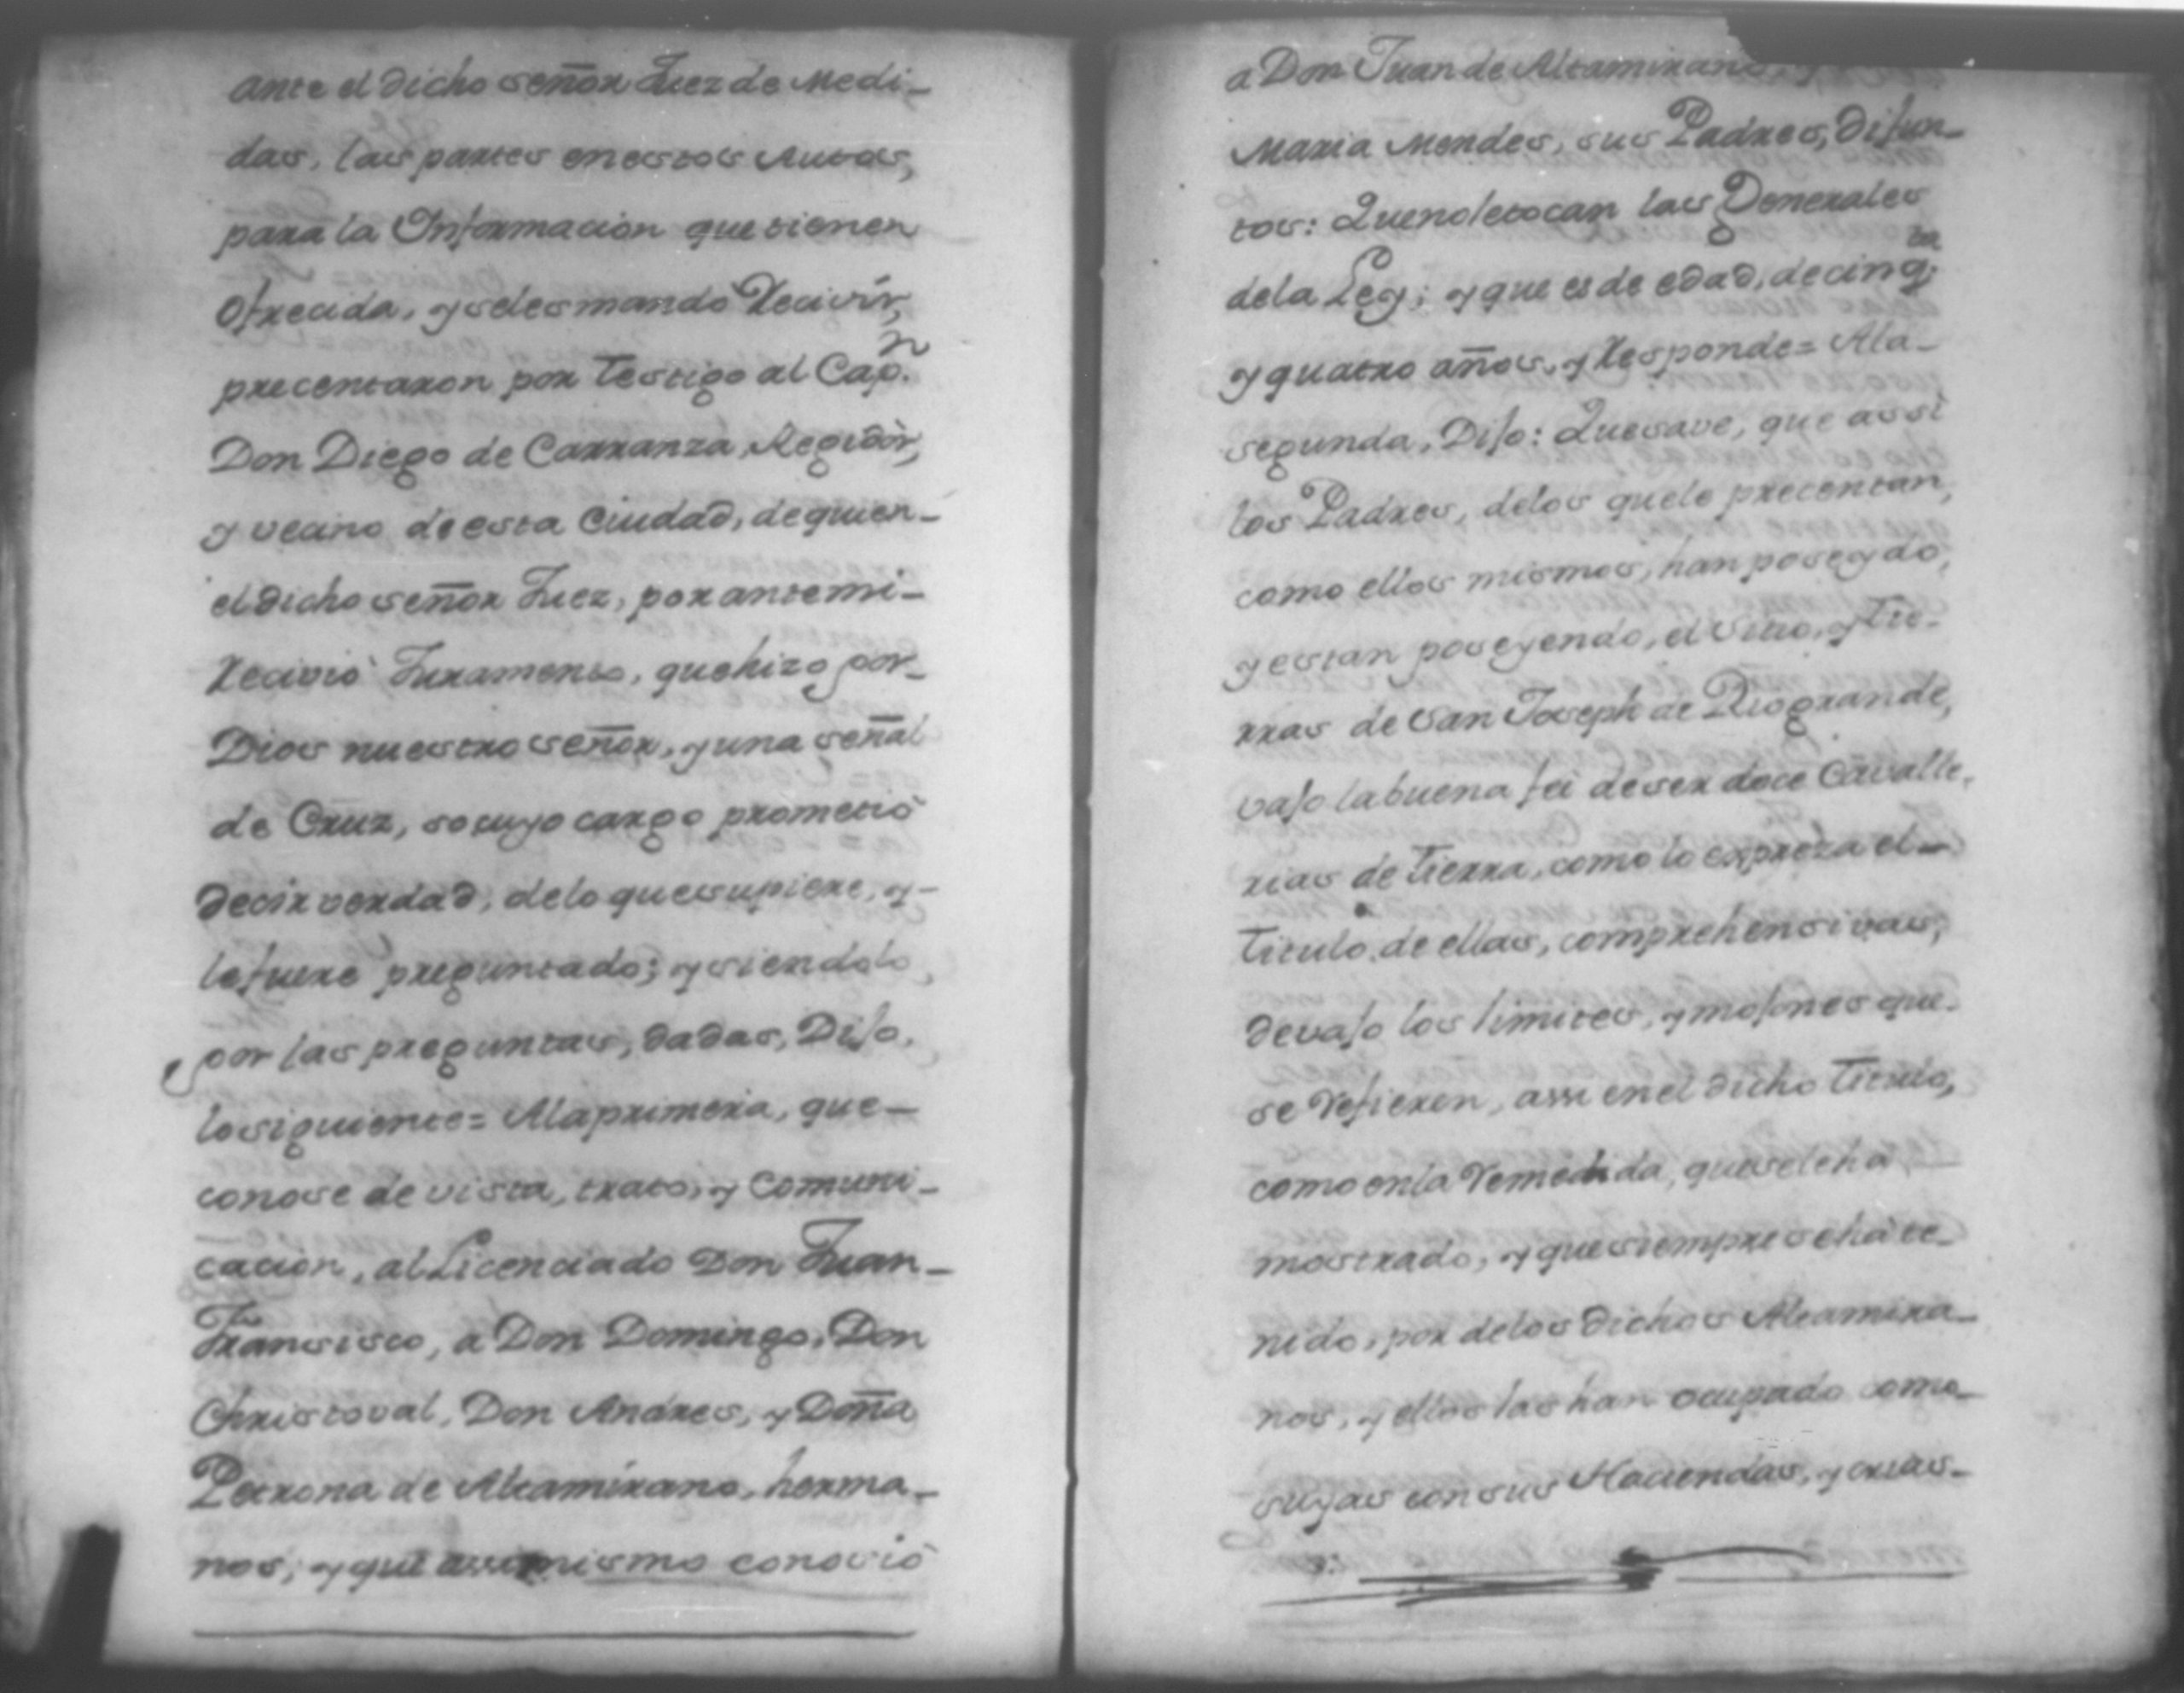 ante el dicho señor Juez de Medi-
das, las partes en estos Autos,
para la Ynformacion que tienen
ofrecida, y seles mando Recivir,
precentaron por testigo al Cap.n
Don Diego de Carranza, Regidòr,
y vecino de esta Ciudad, de quien-
el dicho señor Juez, por ante mi-
Recivio Juramento, que hizo por-
Dios nuestro señor, y una señal
de Cruz, so cuyo cargo prometiò
decir verdad, delo que supiere, y-
le fuere preguntado; y siendolo,
por las preguntas, dadas, Dijo.
lo siguiente= Ala primera, que-
conose de vista, trato, y Comuni-
cacion, al Licenciado Don Juan-
Fransisco, a Don Domingo, Don
Christoval, Don Andres, y Doña
Petrona de Altamirano, herma-
nos; y que assimismo conosiò
a Don Juan de Altamirano, y
Maria Mendes, sus Padres, difun-
tos: Quenoletocan las Generales
dela Ley; y que es de edad, de cinq.ta
y quatro años, y Responde= Ala-
segunda, Dijo: Quesave, que assi
los Padres, delos quele precentan,
como ellos mismos, han poseydo,
y estan poseyendo, el Sitio, y Tie-
rras de San Joseph de Riogrande,
vajo la buena fei de ser doce Cavalle-
rias de tierra, como lo expreza el-
titulo de ellas, comprehensivas,
devajo los limites, y mojones que-
se refieren, assi en el dicho titulo,
como en la remedida, que sele ha
mostrado, y que siempre se hà te-
nido, por delos dichos Altamira-
nos, y ellos las han ocupado como-
suyas con sus Haciendas, y crias-